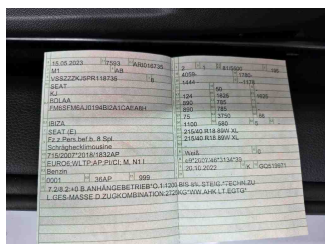 15.05.2023 7593 ARI018735
M1 AB
VSSZZZKJSPR118735 6
SEAT
KJ
BDLAA
FM6SFM6AJ0194BI2A1CAEA8H
IBIZA
SEAT (E)
Fz.z.Pers.bef.b. 8 Spl.
Schräghecklimousine
715/2007*2018/1832AP
EURO6;WLTP;AP;PI/CI; M, N1 I
Benzin
0001 36AP 999
4059-
1780-
1444
50
124 1628 1628
890 785
890 785
75 3750 66
1100 580
215/40 R18 89W XL
215/40 R18 89W XL
Weiß
20.10.2022 K GC519571
7.2/8.2:+0.B.ANHÄNGEBETRIEB*O.1:1200 BIS 8% STEIG.*TECHN.ZU
L.GES-MASSE D.ZUGKOMBINATION:2729KG*WW.AHK LT.EGTG*